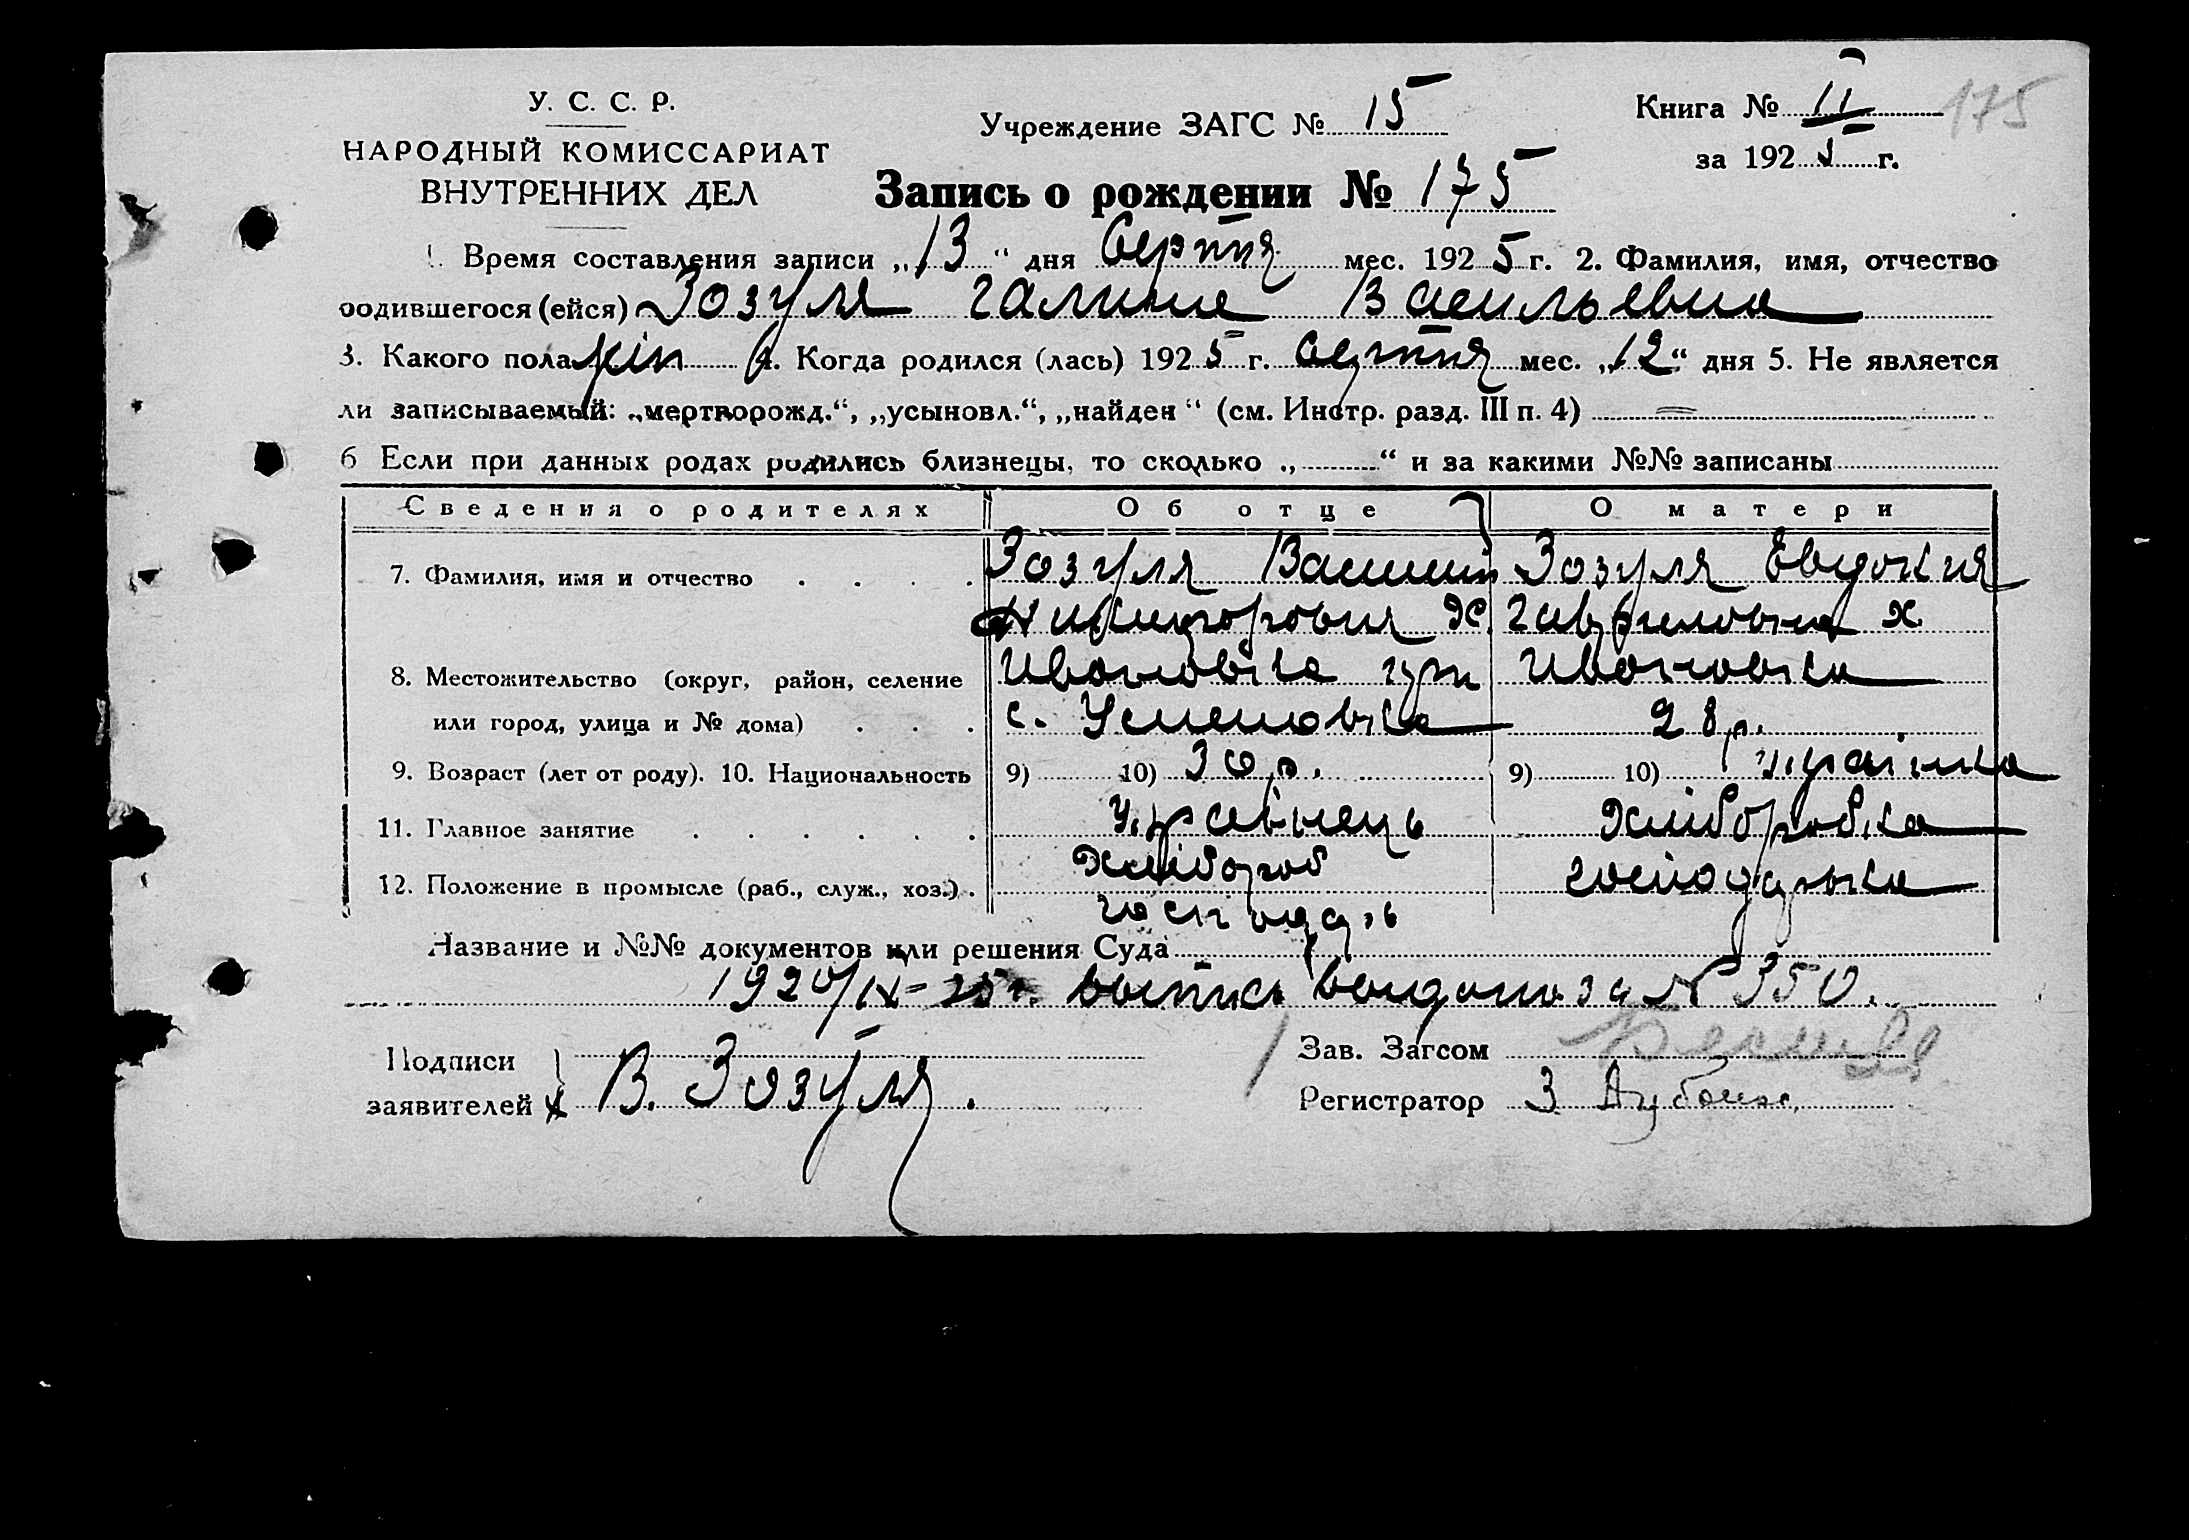 У. С. С. Р.
НАРОДНЫЙ КОМИССАРИАТ
ВНУТРЕННИХ ДЕЛ
Учреждение ЗАГС № 15
Книга № II 175
за 192 5 г.
Запись о рождении № 175
1. Время составления записи „13“ дня Серпня мес. 192 5 г. 2. Фамилия, имя, отчество
родившегося (ейся) Зозуля Галина Васильевна
3. Какого пола жін 4. Когда родился (лась) 192 5 г. серпня мес. „12“ дня 5. Не является
ли записываемый: „мертворожд.“, „усыновл.“, „найден“ (см. Инстр. разд. III п. 4) =
6 Если при данных родах родились близнецы, то сколько „ “ и за какими №№ записаны
Сведения о родителях Об отце О матери
7. Фамилия, имя и отчество Зозуля Василий Зозуля Евдокия
Никифорович х. Гавриловна х
8. Местожительство (округ, район, селение Ивановка Ивановка
или город, улица и № дома) с. 28 р.
9. Возраст (лет от роду). 10. Национальность 9) 10) 30 р. 9) 10) Українка
11. Главное занятие Українець Хліборобка
12. Положение в промысле (раб., служ., хоз.) Хлібороб господарька
господарь
Название и №№ документов или решения Суда
выпись выдана за № 350.
Подписи
заявителей В. Зозуля.
Зав. Загсом
Регистратор З